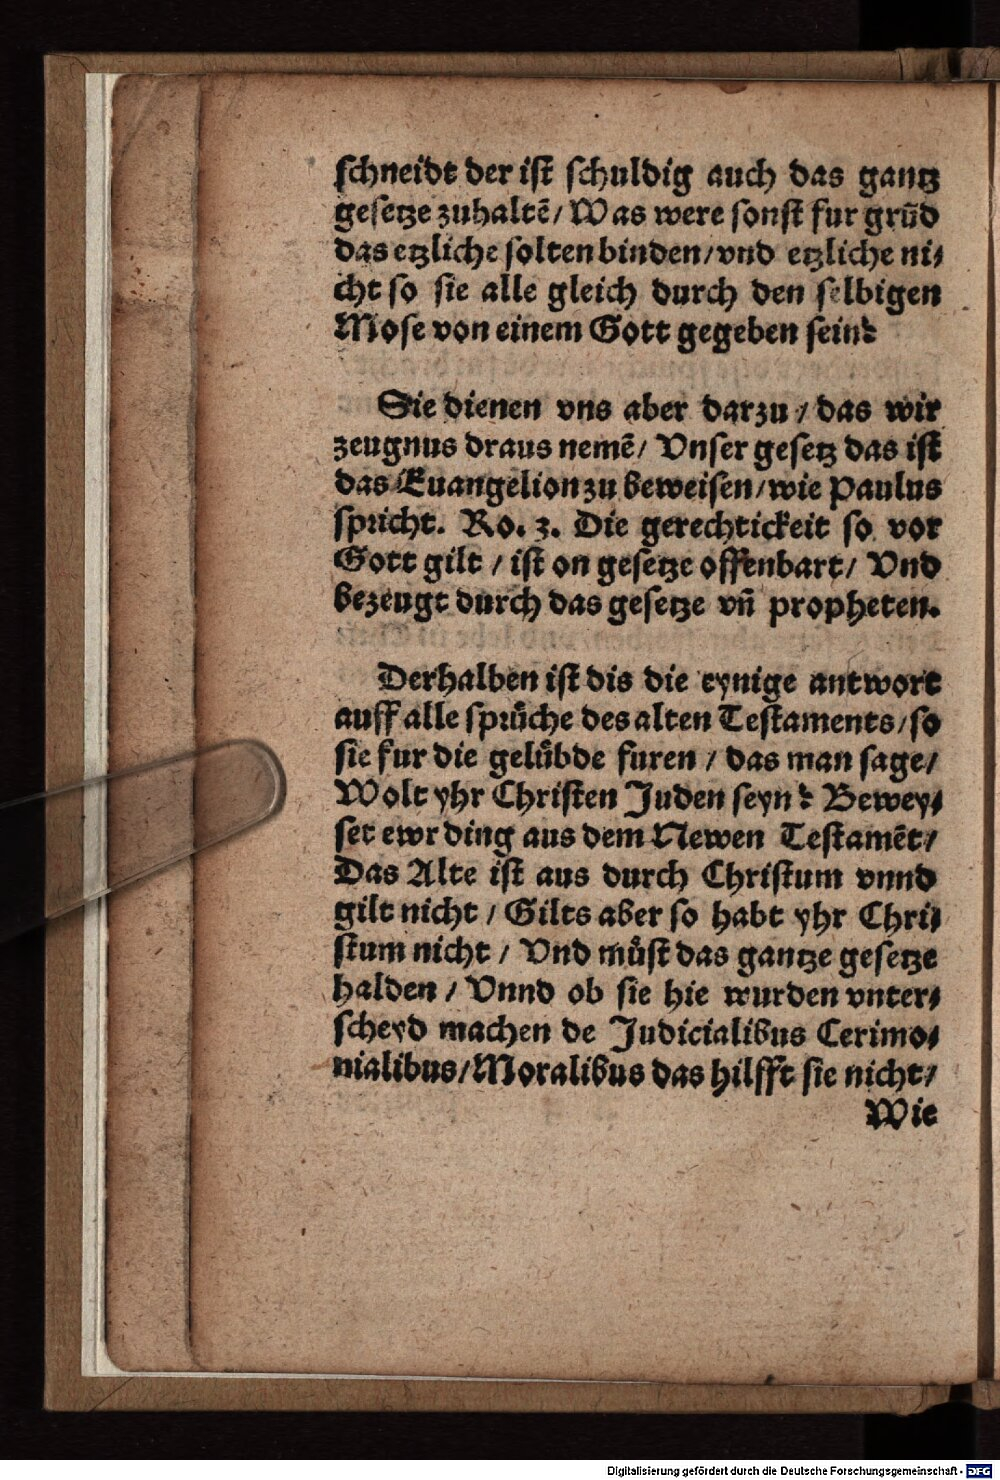 schneidt der ist schuldig auch das gantz
gesetze zuhaltē/ Was were sonst fur grūd
das etzliche solten binden/ vnd etzliche ni⸗
cht so sie alle gleich durch den selbigen
Mose von einem Gott gegeben sein?
Sie dienen vns aber darzu / das wir
zeugnus draus nemē/ Vnser gesetz das ist
das Euangelion zu beweisen/ wie Paulus
spricht. Ro. 3. Die gerechtickeit so vor
Gott gilt / ist on gesetze offenbart/ Vnd
bezeugt durch das gesetze vñ propheten.
Derhalben ist dis die eynige antwort
auff alle sprüche des alten Testaments/ so
sie fur die gelübde furen / das man sage/
Wolt yhr Christen Juden seyn? Bewey⸗
set ewr ding aus dem Newen Testamēt/
Das Alte ist aus durch Christum vnnd
gilt nicht / Gilts aber so habt yhr Chri⸗
stum nicht / Vnd müst das gantze gesetze
halden / Vnnd ob sie hie wurden vnter⸗
scheyd machen de Judicialibus Cerimo⸗
nialibus/ Moralibus das hilfft sie nicht/
Wie
Digitalisierung gefördert durch die Deutsche Forschungsgemeinschaft - DFG